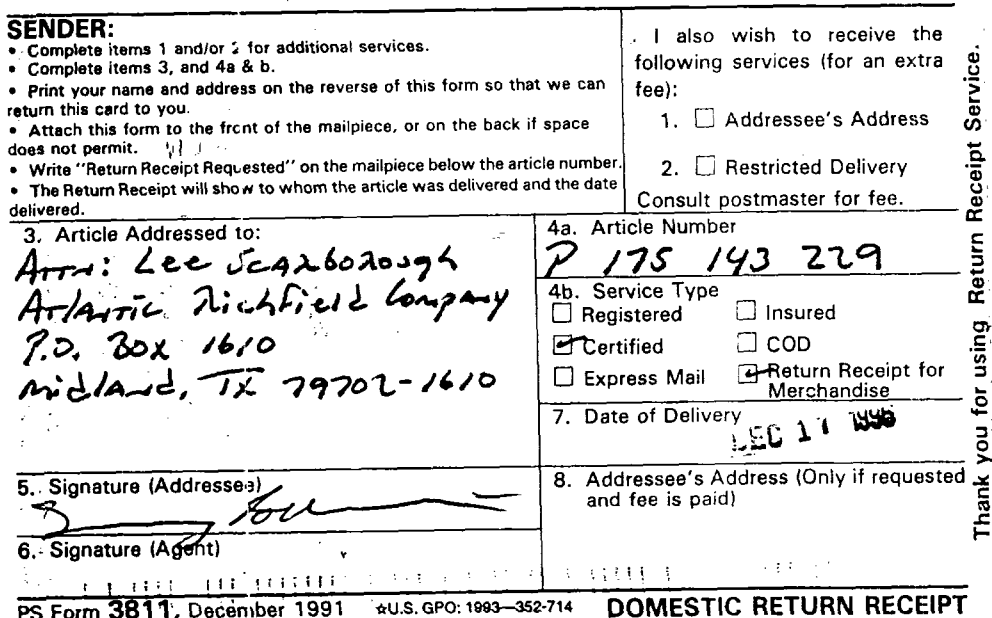 SENDER:
• Complete items 1 and/or 2 for additional services.
• Complete items 3, and 4a & b.
• Print your name and address on the reverse of this form so that we can
return this card to you.
• Attach this form to the front of the mailpiece, or on the back if space
does not permit.
• Write "Return Receipt Requested" on the mailpiece below the article number.
• The Return Receipt will show to whom the article was delivered and the date
delivered.
I also wish to receive the
following services (for an extra
fee):
1. ☐ Addressee's Address
2. ☐ Restricted Delivery
Consult postmaster for fee.
3. Article Addressed to:
Attn: Lee Scarborough
Atlantic Richfield Company
P.O. Box 1610
Midland, TX 79702-1610
4a. Article Number
P 175 143 229
4b. Service Type
☐ Registered ☐ Insured
☑ Certified ☐ COD
☐ Express Mail ☑ Return Receipt for
Merchandise
7. Date of Delivery
5. Signature (Addressee)
6. Signature (Agent)
8. Addressee's Address (Only if requested
and fee is paid)
PS Form 3811, December 1991 ☆U.S. GPO: 1993—352-714 DOMESTIC RETURN RECEIPT
Thank you for using Return Receipt Service.